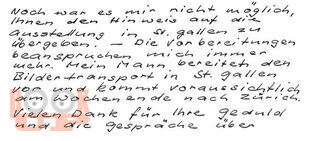 Noch war es mir nicht möglich,
Ihnen den Hinweis auf die
Ausstellung in St. gallen zu
übergeben. – Die Vorbereitungen
beanspruchen mich immer
mehr. Mein Mann bereitet den
Bildertransport in St. gallen
vor und kommt voraussichtlich
am Wochenende nach Zürich.
Vielen Dank für Ihre geduld
und die gespräche über